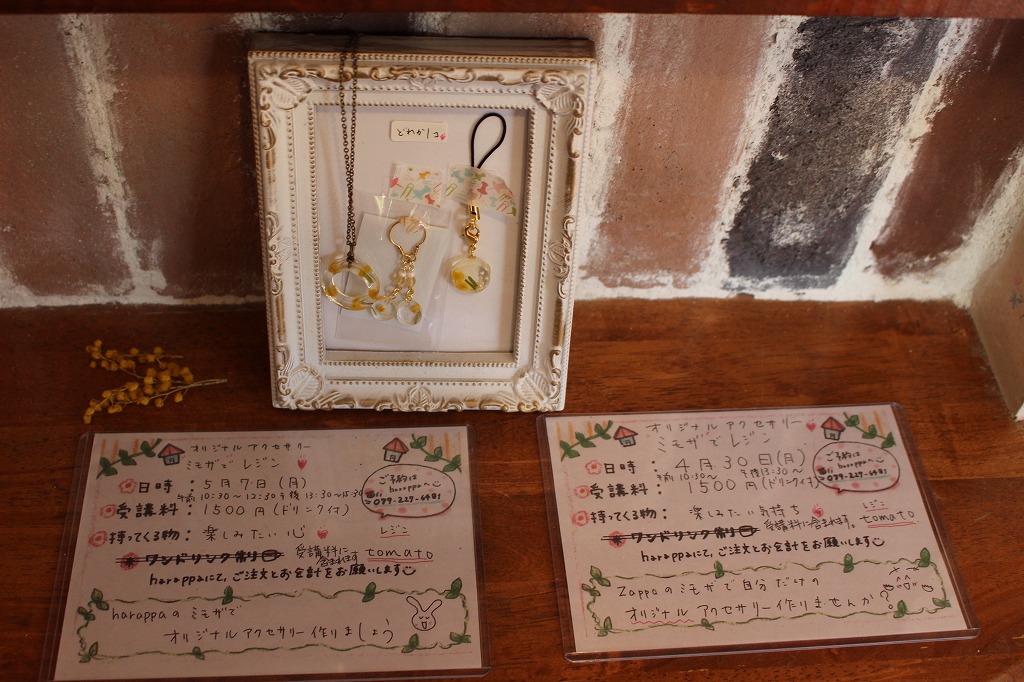 どれか1コ
オリジナル アクセサリー
ミモザで レジン
日時 : 5月7日(月)
午前 10:30〜12:30 午後 13:30〜15:30
受講料 : 1500円(ドリンク付)
持ってくる物 : 楽しみたい心
ワンドリンク制り
受講料に含まれます
レジン
tomato
harappaにて、ご注文とお会計をお願いします
ご予約は
harappaへ
079-227-6481
harappaの ミモザで
オリジナル アクセサリー作りましょう
オリジナル アクセサリー
ミモザで レジン
日時 : 4月30日(月)
午前10:30〜 午後13:30〜
受講料 : 1500円(ドリンク付)
持ってくる物 : 楽しみたい気持ち
ワンドリンク制り
受講料に含まれます。
レジン
tomato
harappaにて、ご注文とお会計をお願いします
ご予約は
harappaへ
079-227-6481
Zappaのミモザで自分だけの
オリジナル アクセサリー作りませんか?